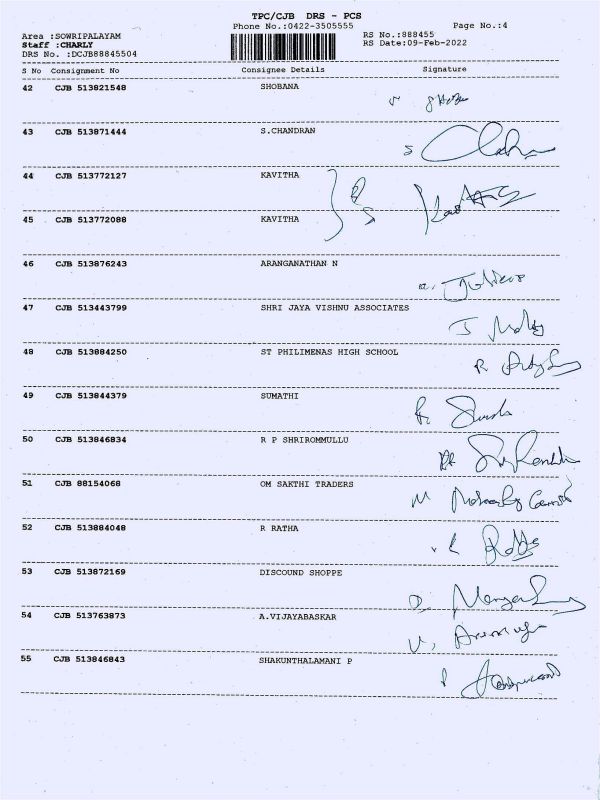 TPC/CJB DRS - PCS
Phone No.:0422-3505555 Page No.:4
Area :SOWRIPALAYAM RS No.:888455
Staff :CHARLY RS Date:09-Feb-2022
DRS No. :DCJB88845504
S No Consignment No Consignee Details Signature
42 CJB 513821548 SHOBANA
43 CJB 513871444 S.CHANDRAN
44 CJB 513772127 KAVITHA
45 CJB 513772088 KAVITHA
46 CJB 513876243 ARANGANATHAN N
47 CJB 513443799 SHRI JAYA VISHNU ASSOCIATES
48 CJB 513884250 ST PHILIMENAS HIGH SCHOOL
49 CJB 513844379 SUMATHI
50 CJB 513846834 R P SHRIROMMULLU
51 CJB 88154068 OM SAKTHI TRADERS
52 CJB 513884048 R RATHA
53 CJB 513872169 DISCOUND SHOPPE
54 CJB 513763873 A.VIJAYABASKAR
55 CJB 513846843 SHAKUNTHALAMANI P